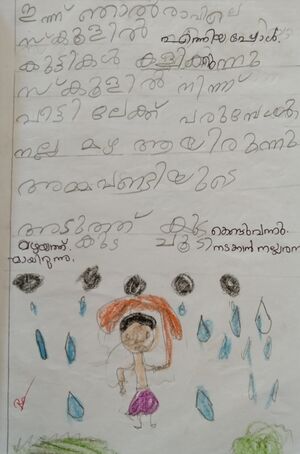 ഇന്ന് ഞാൻ രാവിലെ
സ്കൂളിൽ എത്തിയപ്പോൾ
കുട്ടികൾ കളിക്കുന്നു
സ്കൂളിൽ നിന്ന്
വീട്ടിലേക്ക് വരുമ്പോൾ
നല്ല മഴ ആയിരുന്നു
അമ്മ വണ്ടിയുടെ
അടുത്ത് കുട കൊണ്ടുവന്നു.
മഴയത്ത് കുട ചൂടി നടക്കാൻ നല്ലരസ
മായിരുന്നു.